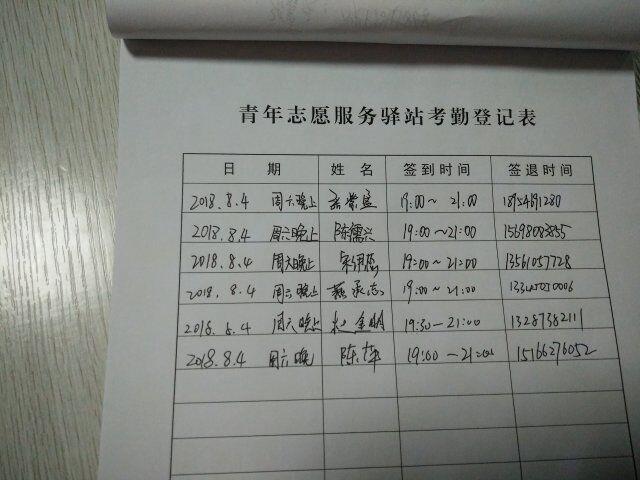 青年志愿服务驿站考勤登记表
日 期 姓 名 签到时间 签退时间
2018.8.4 周六晚上 19:00~21:00 18954691280
2018.8.4 周六晚上 陈儒兴 19:00~21:00 15698083855
2018.8.4 周六晚上 宋伊思 19:00~21:00 13561057728
2018.8.4 周六晚上 19:00~21:00
2018.8.4 周六晚上 赵金明 19:30-21:00 13287382111
2018.8.4 周六晚 陈苹 19:00-21:00 15166276052